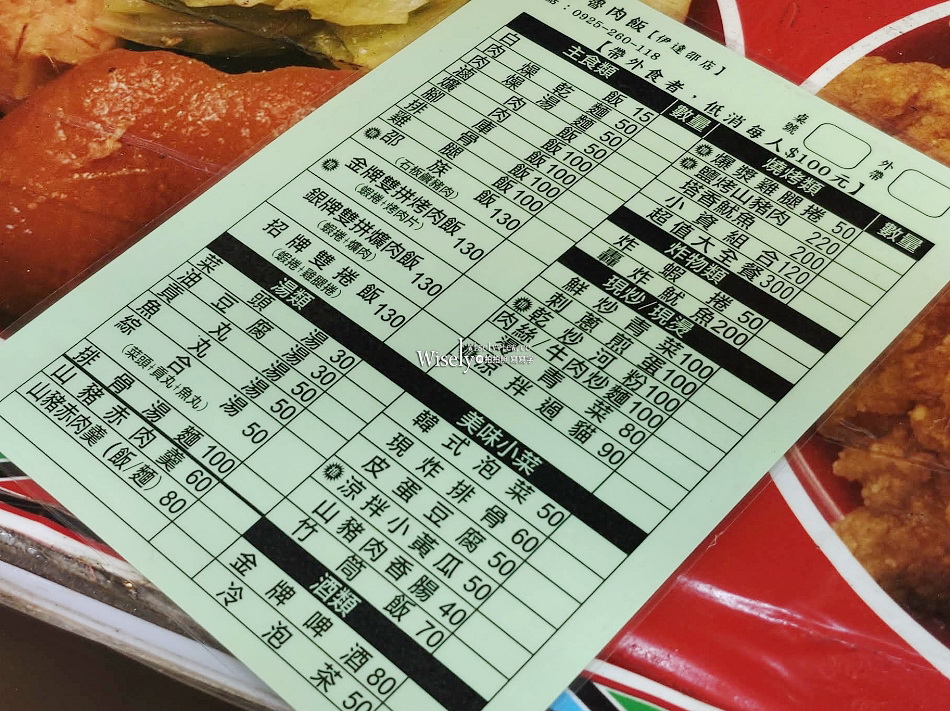 魯肉飯【伊達邵店】
0925-260-118
【帶外食者，低消每人$100元】
桌號
外帶
主食類 數量
白飯 15
肉燥乾麵 50
肉燥湯麵 50
滷肉飯
爌肉飯 100
腳庫飯 100
排骨飯 100
雞腿飯
邵族飯 130
(石板鹹豬肉)
金牌雙拼烤肉飯 130
(蝦捲+烤肉片)
銀牌雙拼爌肉飯 130
(蝦捲+爌肉)
招牌雙捲飯 130
(蝦捲+雞腿捲)
湯類
菜頭湯 30
油豆腐湯 30
貢丸湯 50
魚丸湯 50
綜合湯 50
(菜頭+貢丸+魚丸)
排骨湯麵 100
山豬赤肉羹 60
山豬赤肉羹(飯/麵) 80
燒烤類 數量
爆漿雞腿捲 50
鹽烤山豬肉 220
塔香魷魚 200
小資組合 120
超值大全餐 300
炸物類
炸蝦捲 50
轟炸魷魚 200
現炒/現燙
鮮炒青菜 100
刺蔥煎蛋 100
乾炒河粉 100
肉絲/牛肉炒麵 100
青菜 80
涼拌過貓 90
美味小菜
韓式泡菜 50
現炸排骨 60
皮蛋豆腐 50
涼拌小黃瓜 50
山豬肉香腸 40
竹筒飯 70
酒類
金牌啤酒 80
冷泡茶 50
Wisely